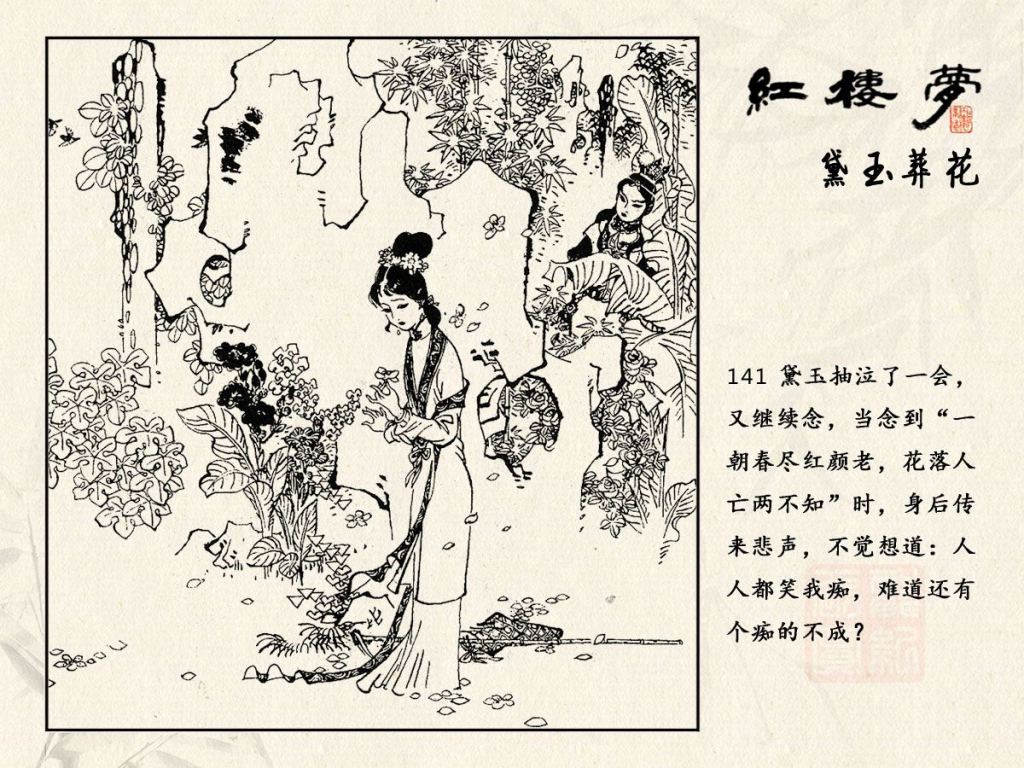 紅樓夢
黛玉葬花
141 黛玉抽泣了一会，
又继续念，当念到“一
朝春尽红颜老，花落人
亡两不知”时，身后传
来悲声，不觉想道：人
人都笑我痴，难道还有
个痴的不成？